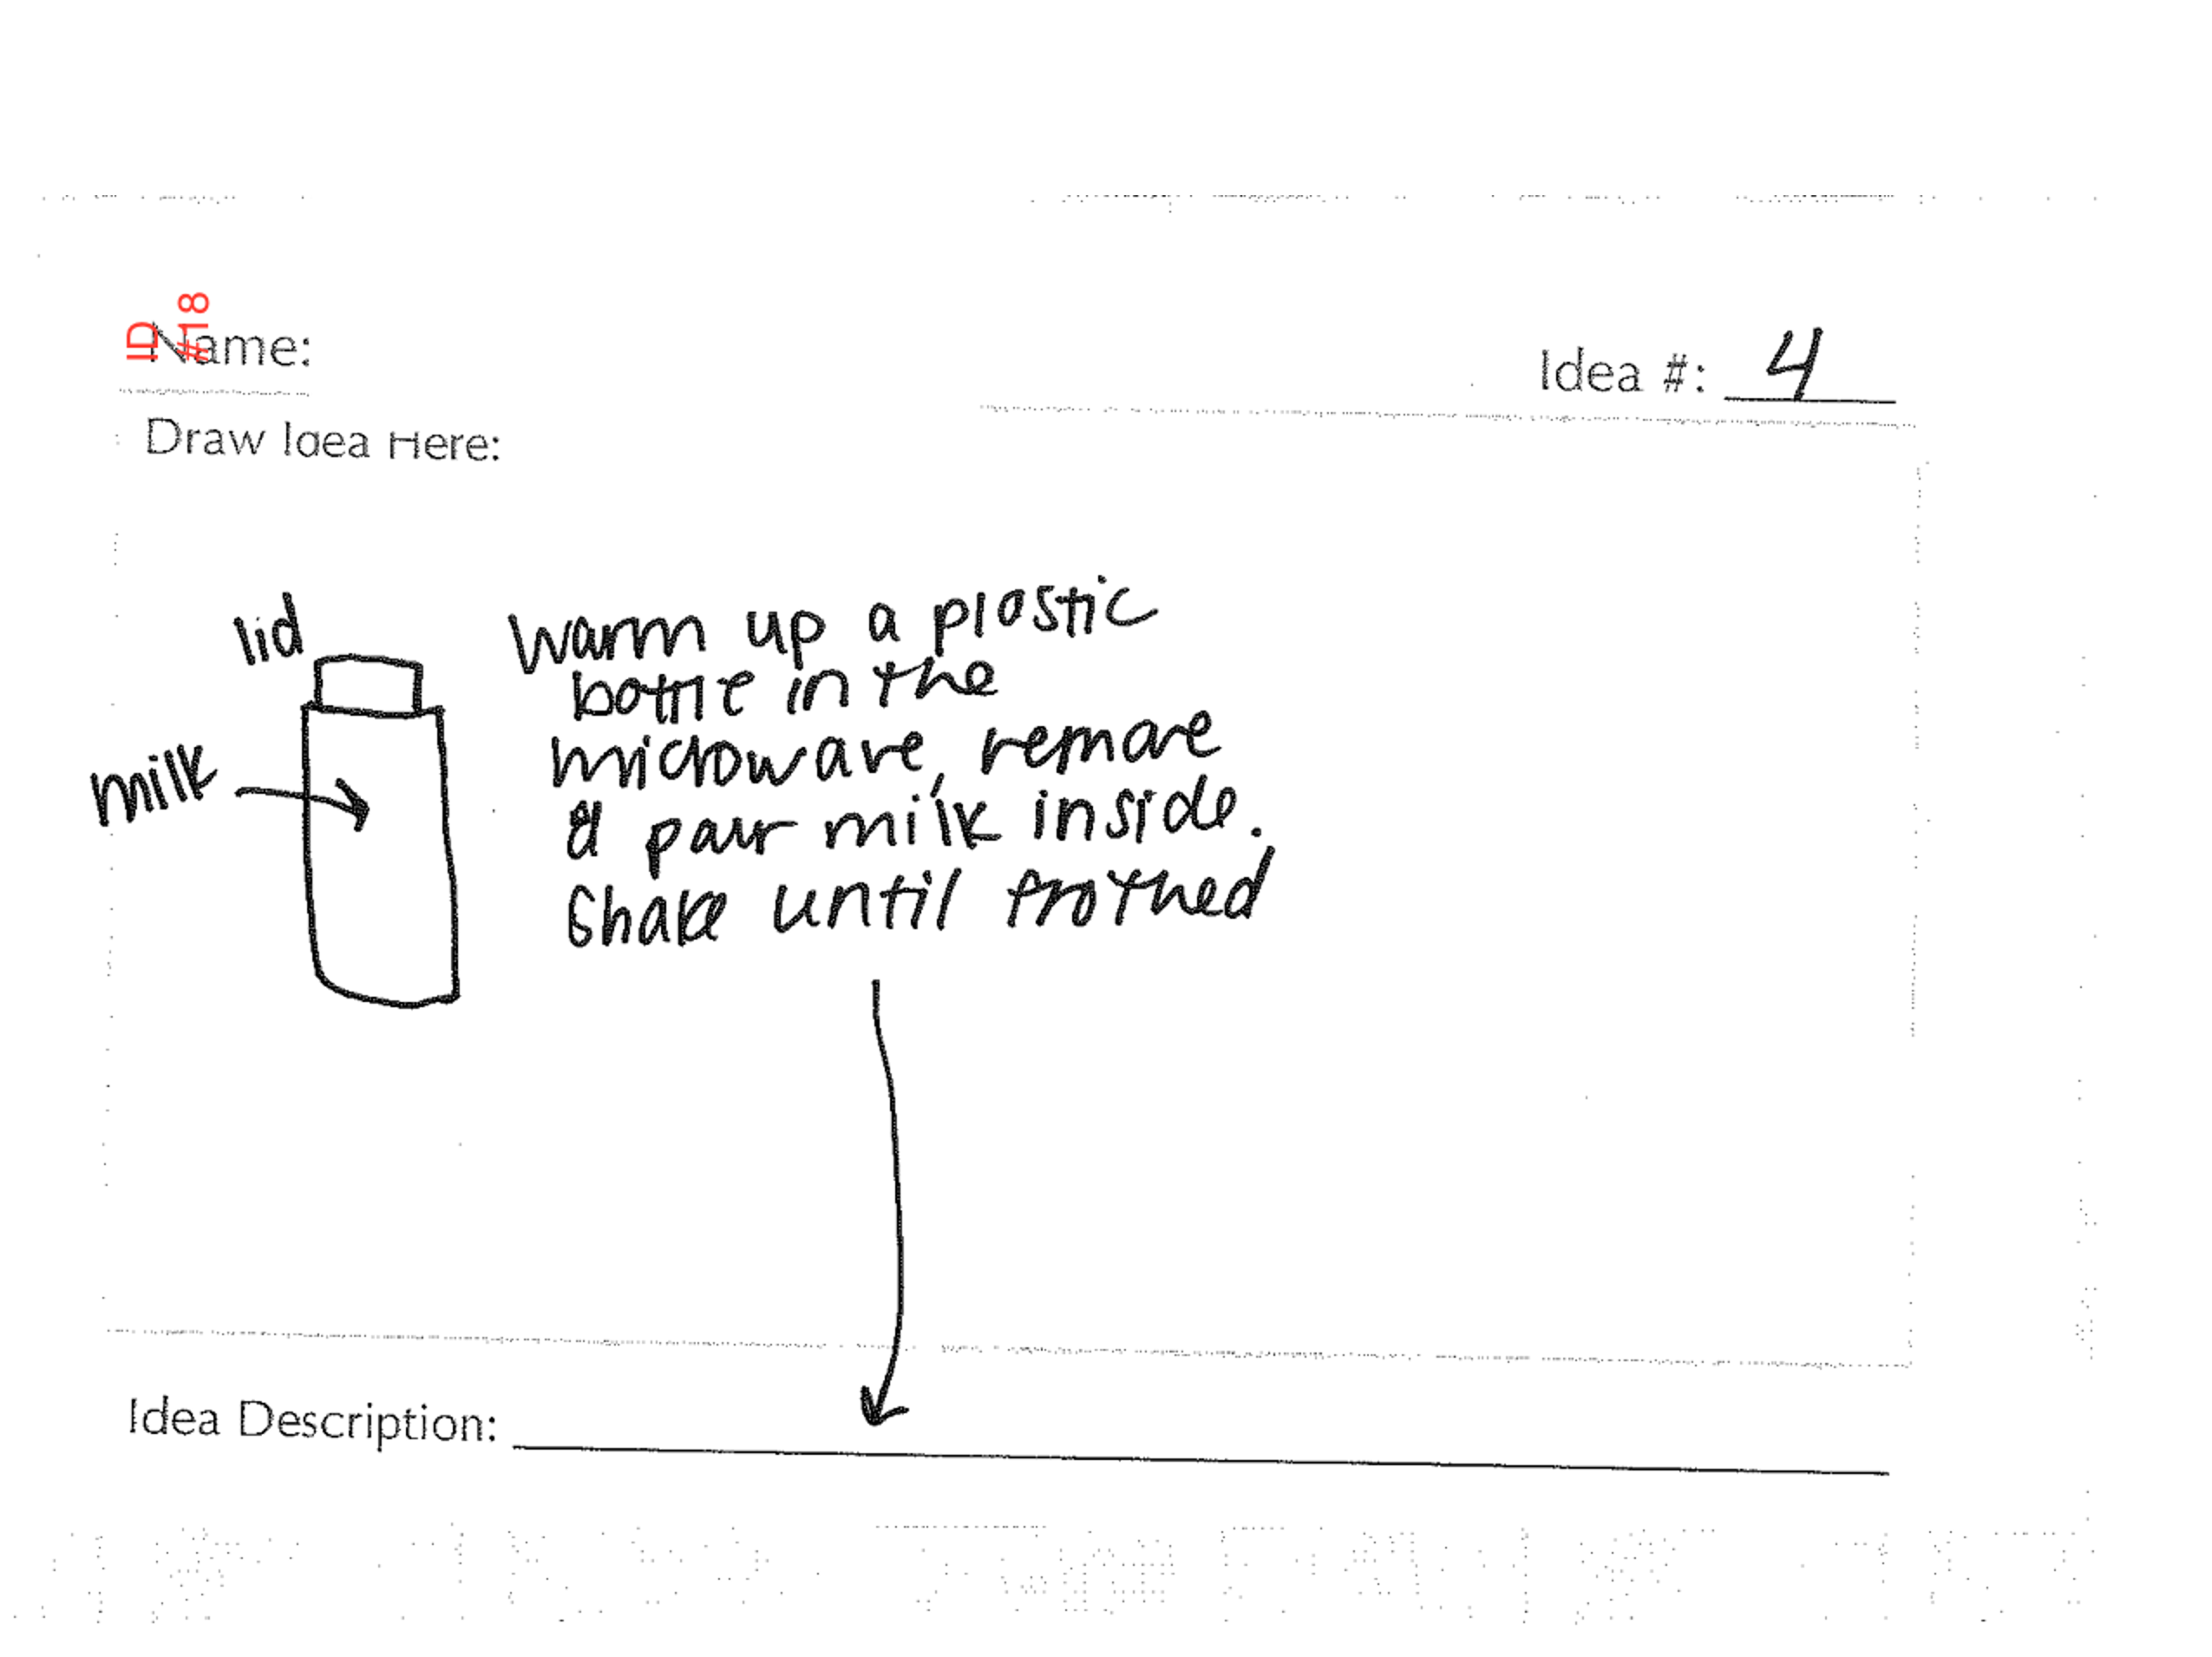 ID
#18
Name:
Idea #: 4
Draw Idea Here:
lid
milk
Warm up a plastic
bottle in the
microwave, remove
& pour milk inside.
Shake until frothed
Idea Description: